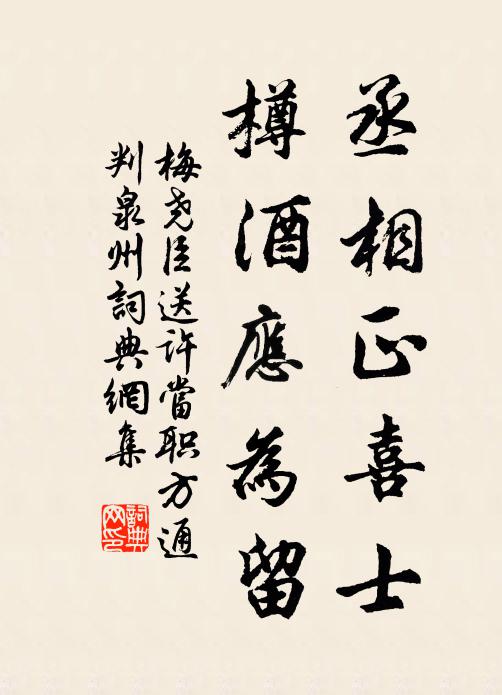 丞相正喜士
樽酒應為留
梅尧臣送许當职方通
判泉州詞典網集
詞典网印